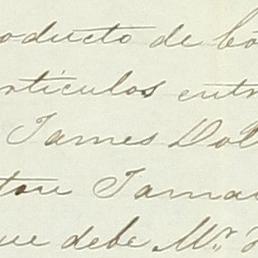 oducto de bo
rtículos entr
James Dol
ton Tama
ue debe Mr. H